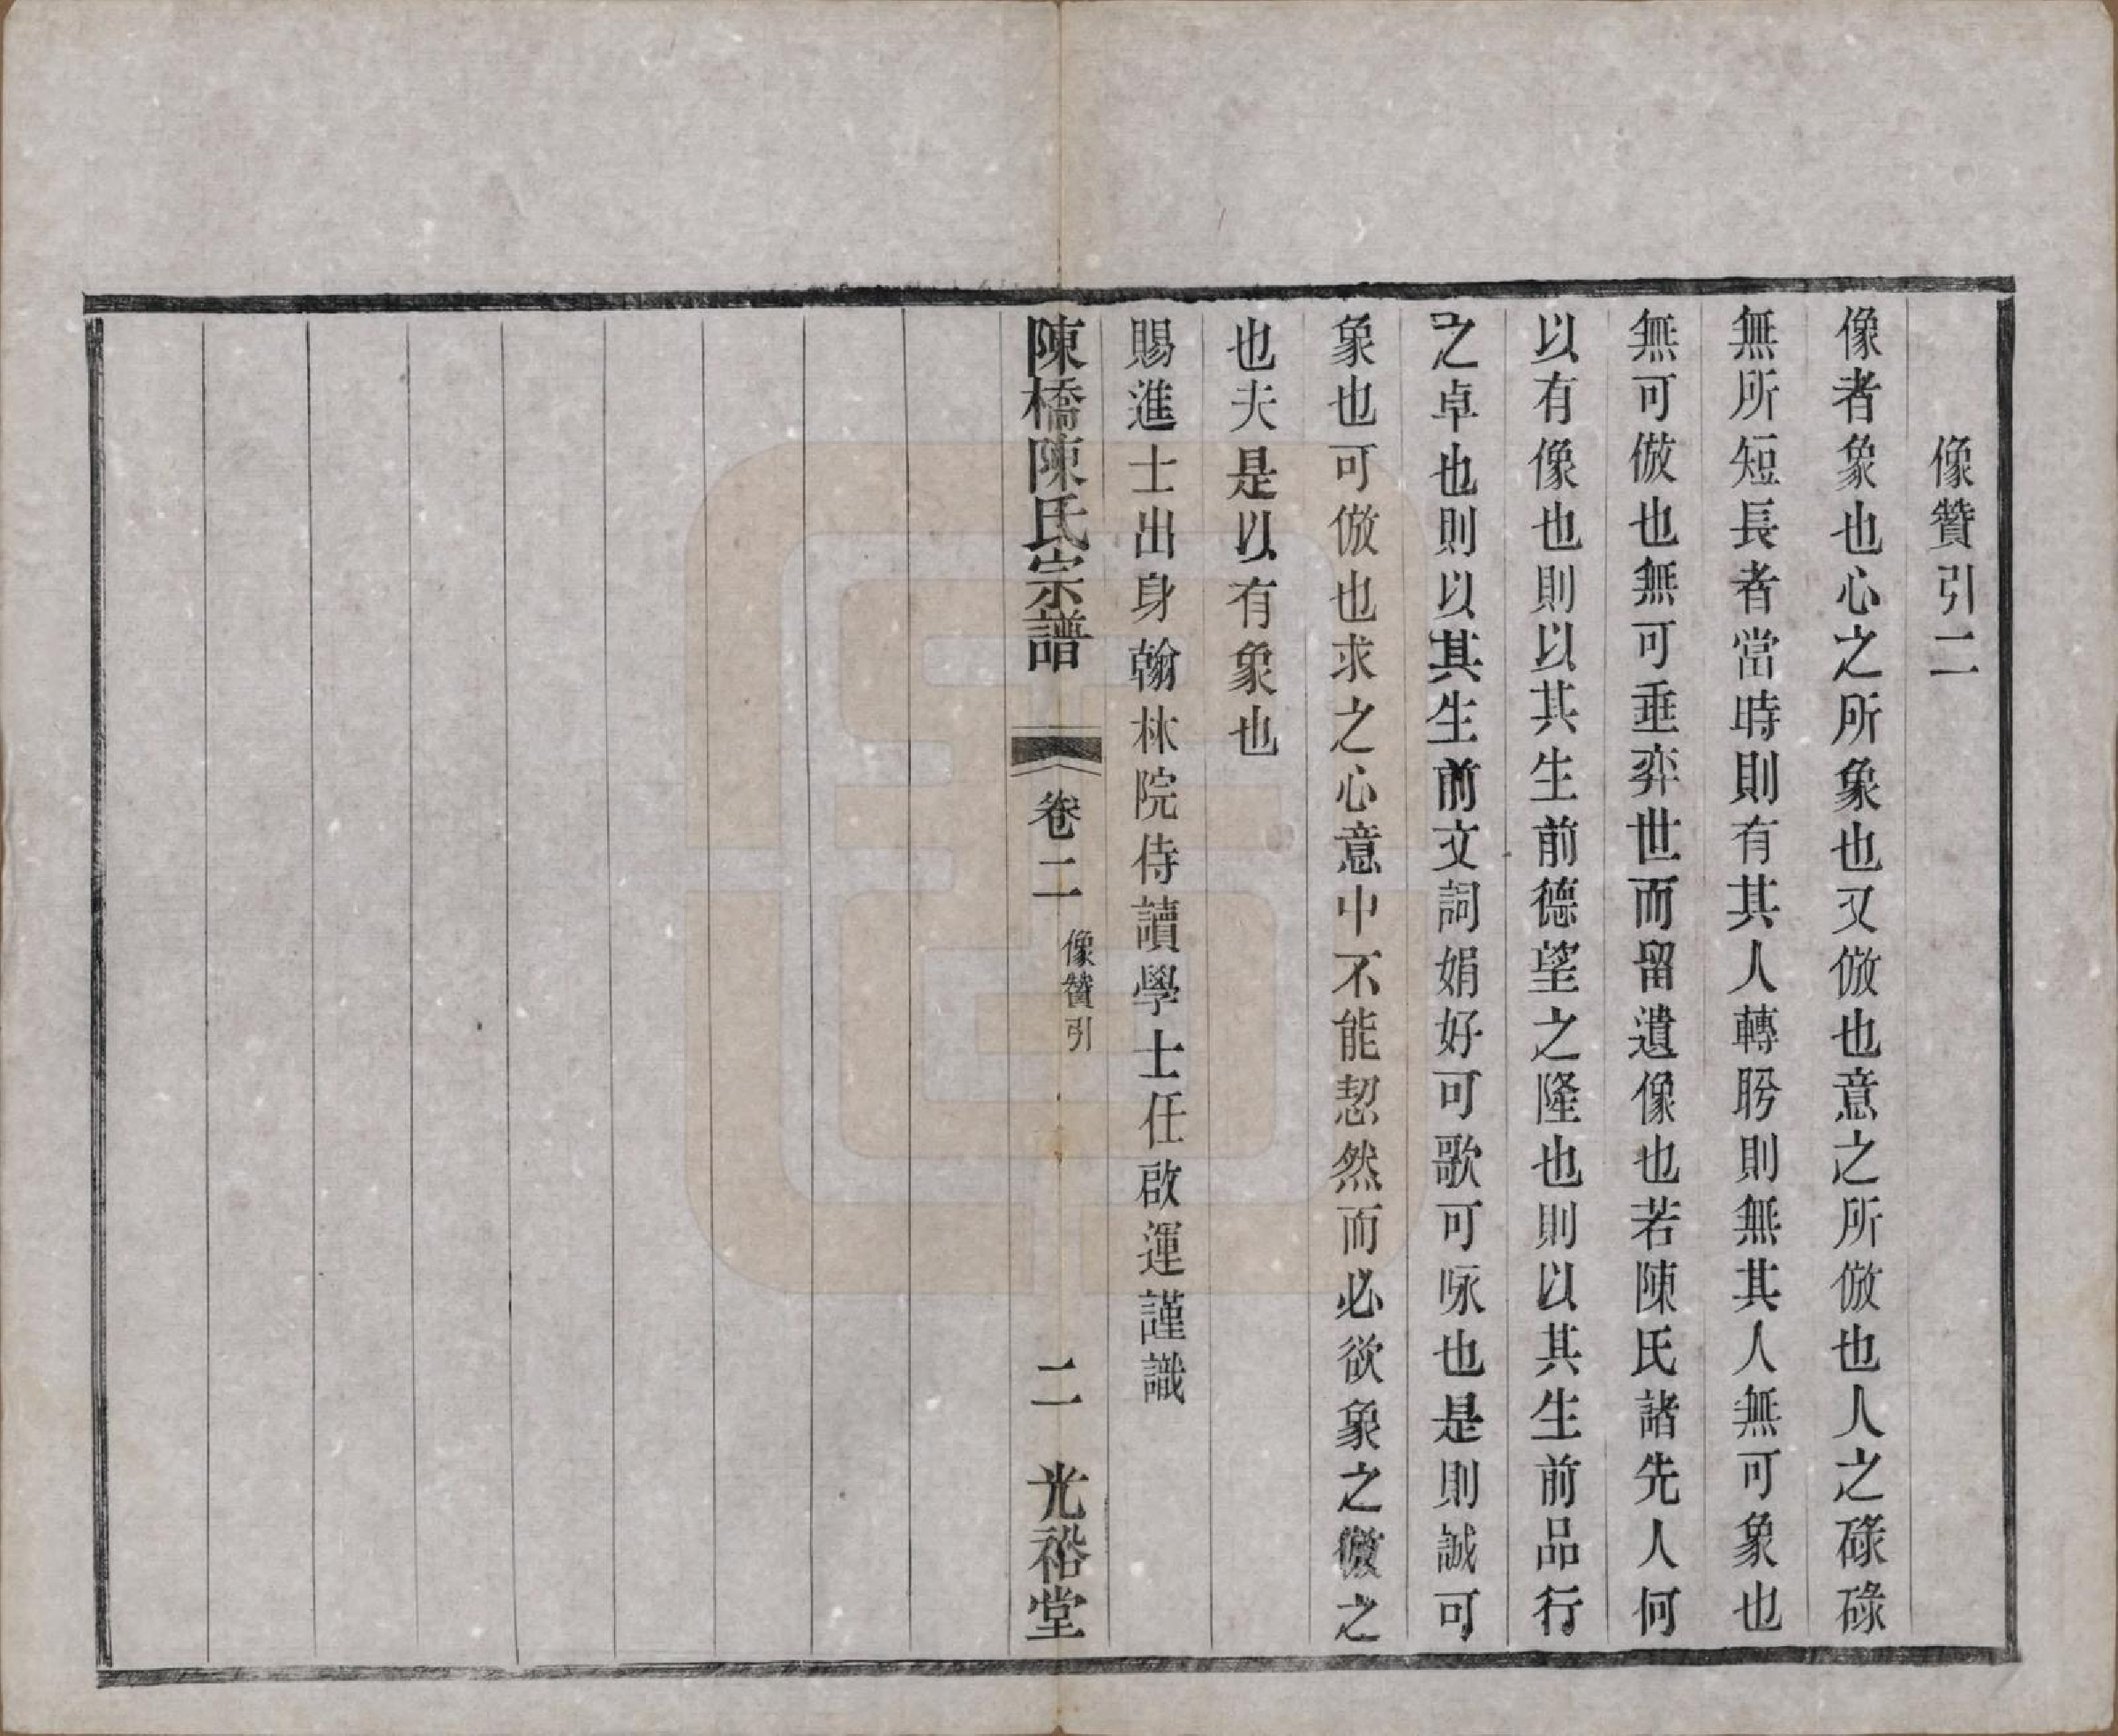 像贊引二
像者象也心之所象也又倣也意之所倣也人之碌碌
無所短長者當時則有其人轉盻則無其人無可象也
無可倣也無可垂弈世而留遺像也若陳氏諸先人何
以有像也則以其生前德望之隆也則以其生前品行
之卓也則以其生前文詞娟好可歌可咏也是則誠可
象也可倣也求之心意中不能恝然而必欲象之倣之
也夫是以有象也
賜進士出身翰林院侍讀學士任啟運謹識
陳橋陳氏宗譜
卷二
像贊引
二
光裕堂